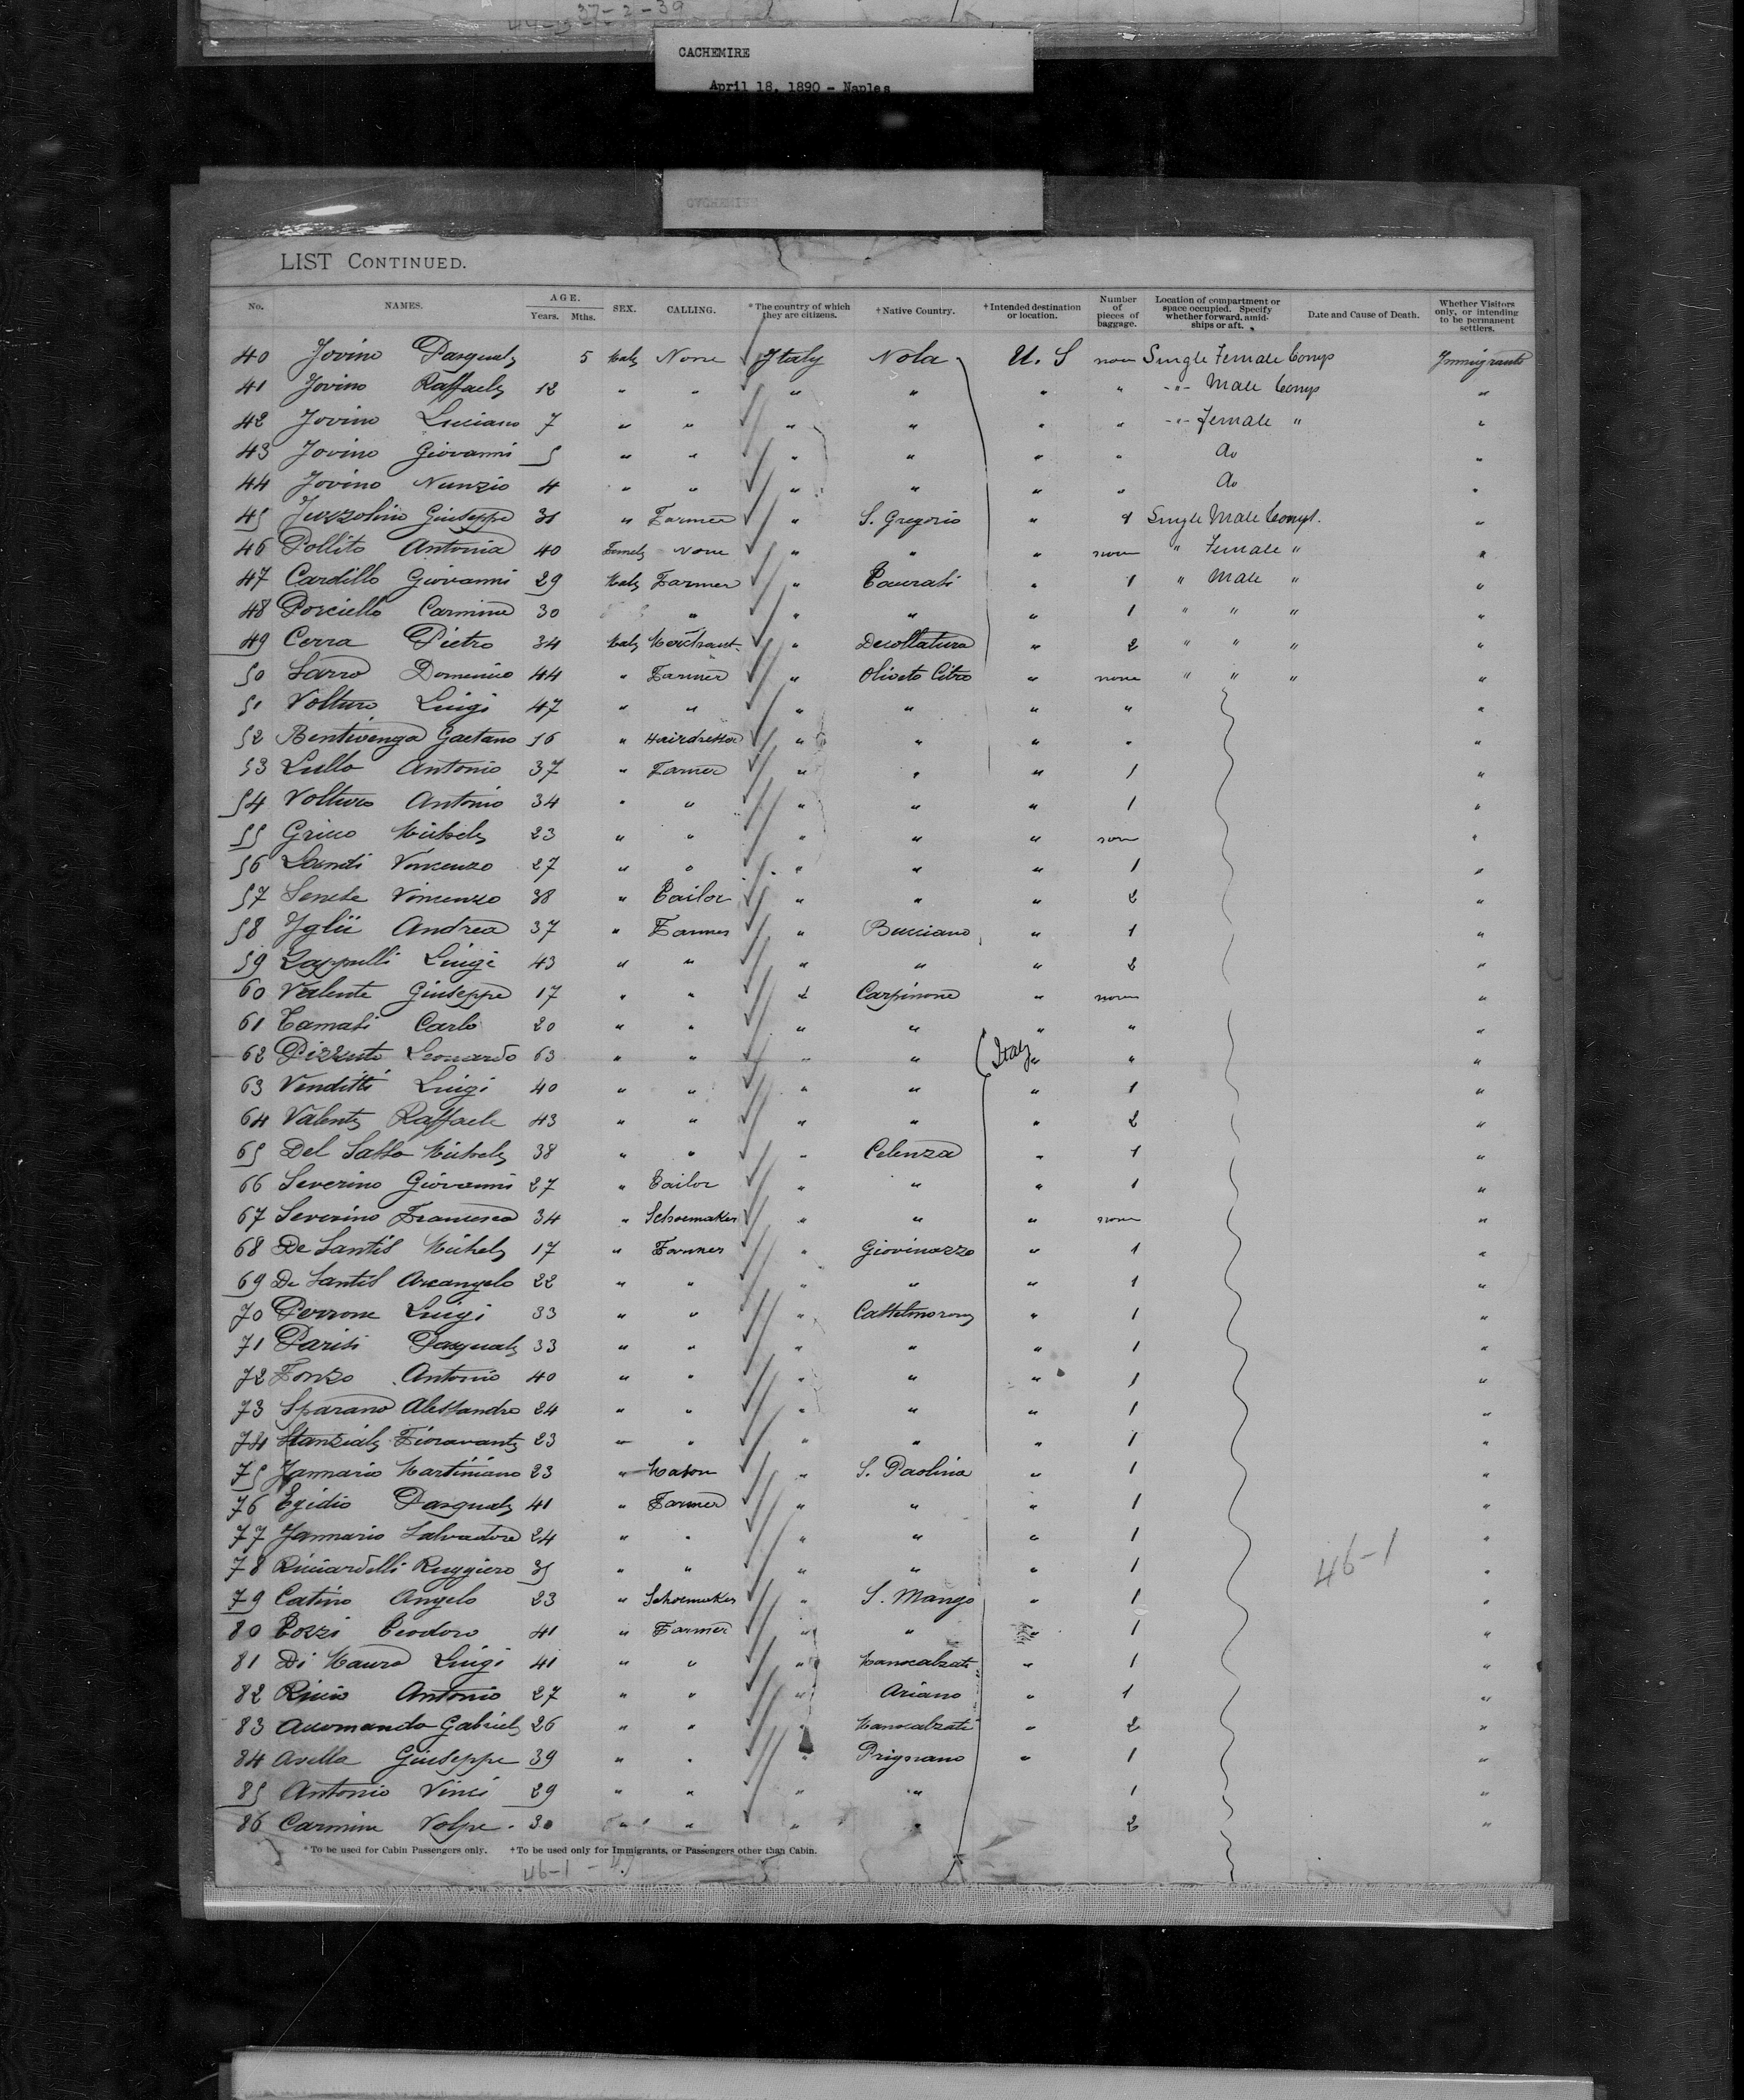 37-2-39
CACHEMIRE
April 18, 1890 - Naples
LIST CONTINUED.
No. NAMES. AGE. Years. Mths. SEX. CALLING. *The country of which they are citizens. †Native Country. †Intended destination or location. Number of pieces of baggage. Location of compartment or space occupied. Specify whether forward, amidships or aft. Date and Cause of Death. Whether Visitors only, or intending to be permanent settlers.
40 Jovino Pasquale 5 Male None Italy Nola U. S none Single Female Comp Immigrants
41 Jovino Raffaele 12 " " " " " " -"- Male Comp "
42 Jovino Luciano 7 " " " " " " -"- Female " "
43 Jovino Giovanni 5 " " " " " " Do "
44 Jovino Nunzio 4 " " " " " " Do "
45 Juzzolino Giuseppe 31 " Farmer " S. Gregorio " 1 Single Male Compt. "
46 Pollito Antonia 40 Female None " " " none " Female " "
47 Cardillo Giovanni 29 Male Farmer " Taurasi " 1 " Male " "
48 Porciello Carmine 30 " " " " 1 " " " "
49 Cerra Pietro 34 Male Merchant " Decollatura " 2 " " " "
50 Sarro Domenico 44 " Farmer " Oliveto Citra " none " " " "
51 Volturo Luigi 47 " " " " " " "
52 Bentivenga Gaetano 16 " Hairdresser " " " " "
53 Lullo Antonio 37 " Farmer " " " 1 "
54 Volturo Antonio 34 " " " " " 1 "
55 Grieco Michele 23 " " " " " none "
56 Landi Vincenzo 27 " " " " " 1 "
57 Senese Vincenzo 38 " Tailor " " " 2 "
58 Iglii Andrea 37 " Farmer " Bucciano " 1 "
59 Zappulli Luigi 43 " " " " " 2 "
60 Valente Giuseppe 17 " " " Carpinone " none "
61 Tamasi Carlo 20 " " " " " " "
62 Pizzuto Leonardo 63 " " " " Italy " " "
63 Venditti Luigi 40 " " " " " 1 "
64 Valente Raffaele 43 " " " " " 2 "
65 Del Sasso Michele 38 " " " Celenza " 1 "
66 Severino Giovanni 27 " Tailor " " " 1 "
67 Severino Francesco 34 " Schoemaker " " " none "
68 De Santis Michele 17 " Farmer " Giovinazzo " 1 "
69 De Santis Arcangelo 22 " " " " " 1 "
70 Perrone Luigi 33 " " " Castelmorone " 1 "
71 Parisi Pasquale 33 " " " " " 1 "
72 Fonzo Antonio 40 " " " " " 1 "
73 Sparano Alessandro 24 " " " " " 1 "
74 Stanziale Fioravante 23 " " " " " 1 "
75 Jannario Martiniano 23 " Mason " S. Paolina " 1 "
76 Egidio Pasquale 41 " Farmer " " " 1 "
77 Jannario Salvadore 24 " " " " " 1 "
78 Ricciardelli Ruggiero 35 " " " " " 1 46-1 "
79 Catino Angelo 23 " Schoemaker " S. Mango " 1 "
80 Tozzi Teodoro 41 " Farmer " " " 1 "
81 Di Mauro Luigi 41 " " " Manocalzati " 1 "
82 Riccio Antonio 27 " " " Ariano " 1 "
83 Accomando Gabriele 26 " " " Manocalzati " 2 "
84 Avella Giuseppe 39 " " " Prignano " 1 "
85 Antonio Vinci 29 " " " " 1 "
86 Carmine Volpe. 30 " " " 2 "
*To be used for Cabin Passengers only. †To be used only for Immigrants, or Passengers other than Cabin.
46-1